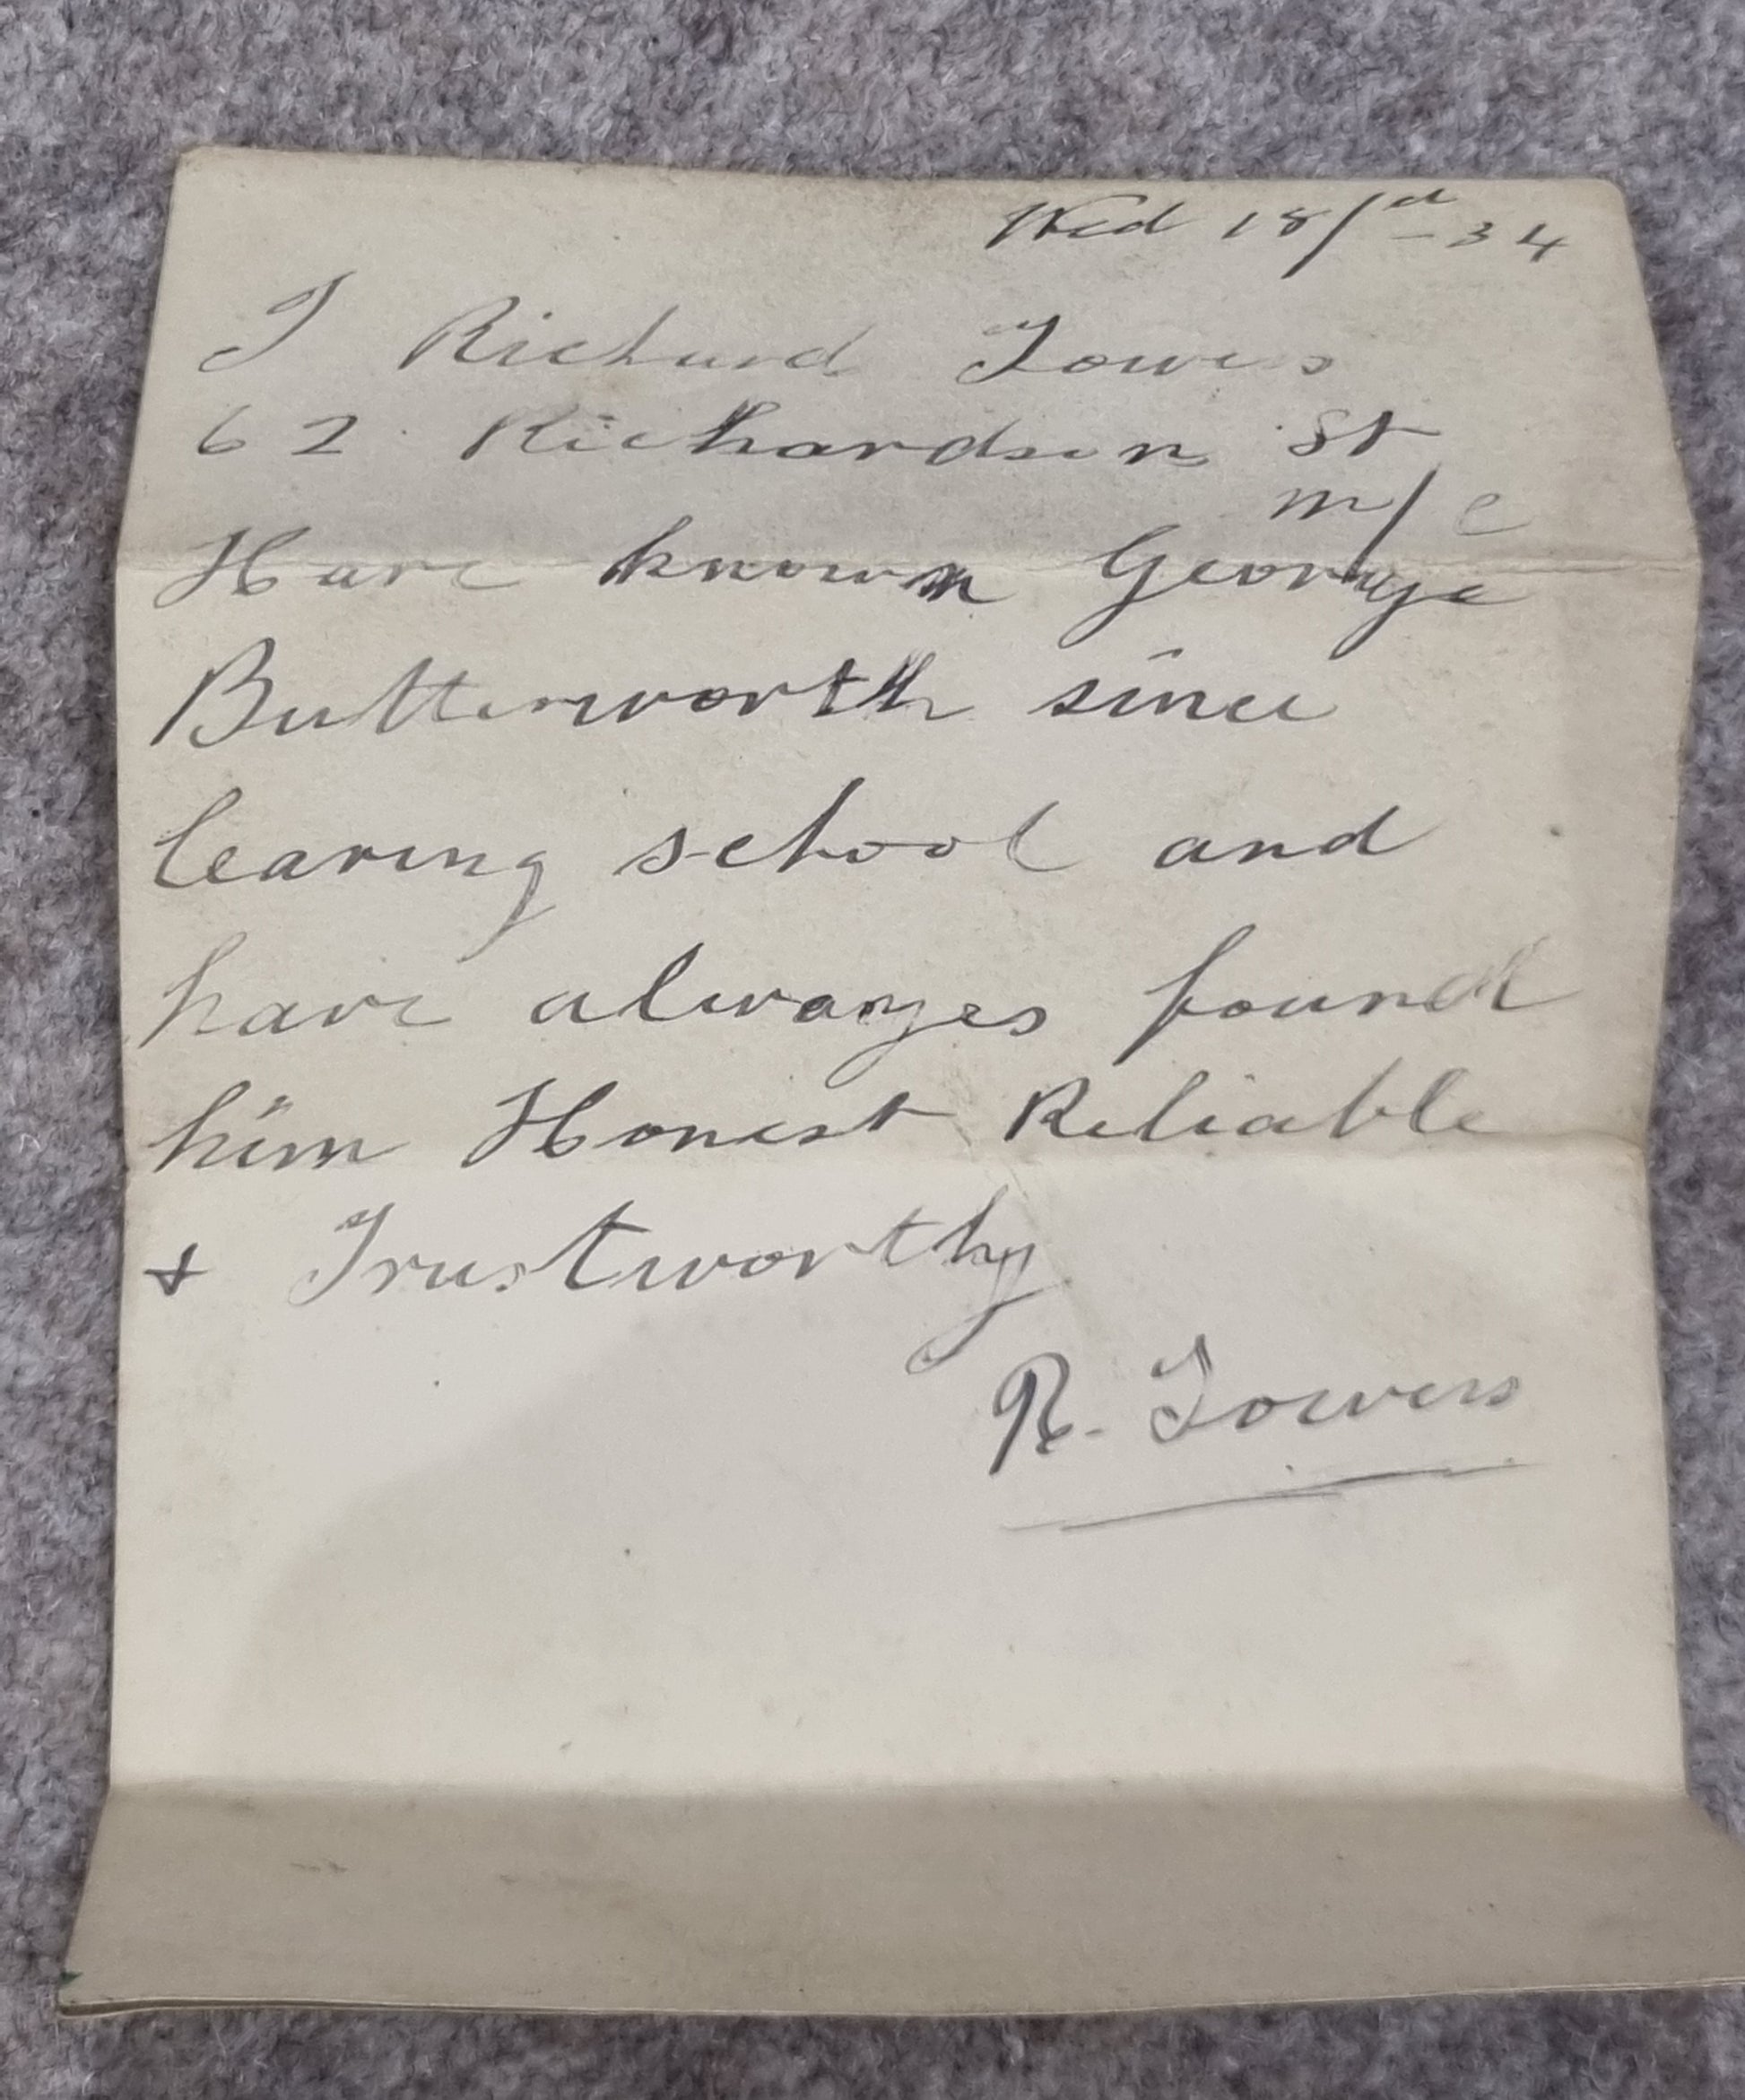 Wed 18/ -34
I Richard Towers
62 Richardson St
m/c
Have known George
Butterworth since
leaving school and
have alwayes found
him Honest Reliable
+ Trustworthy
R. Towers